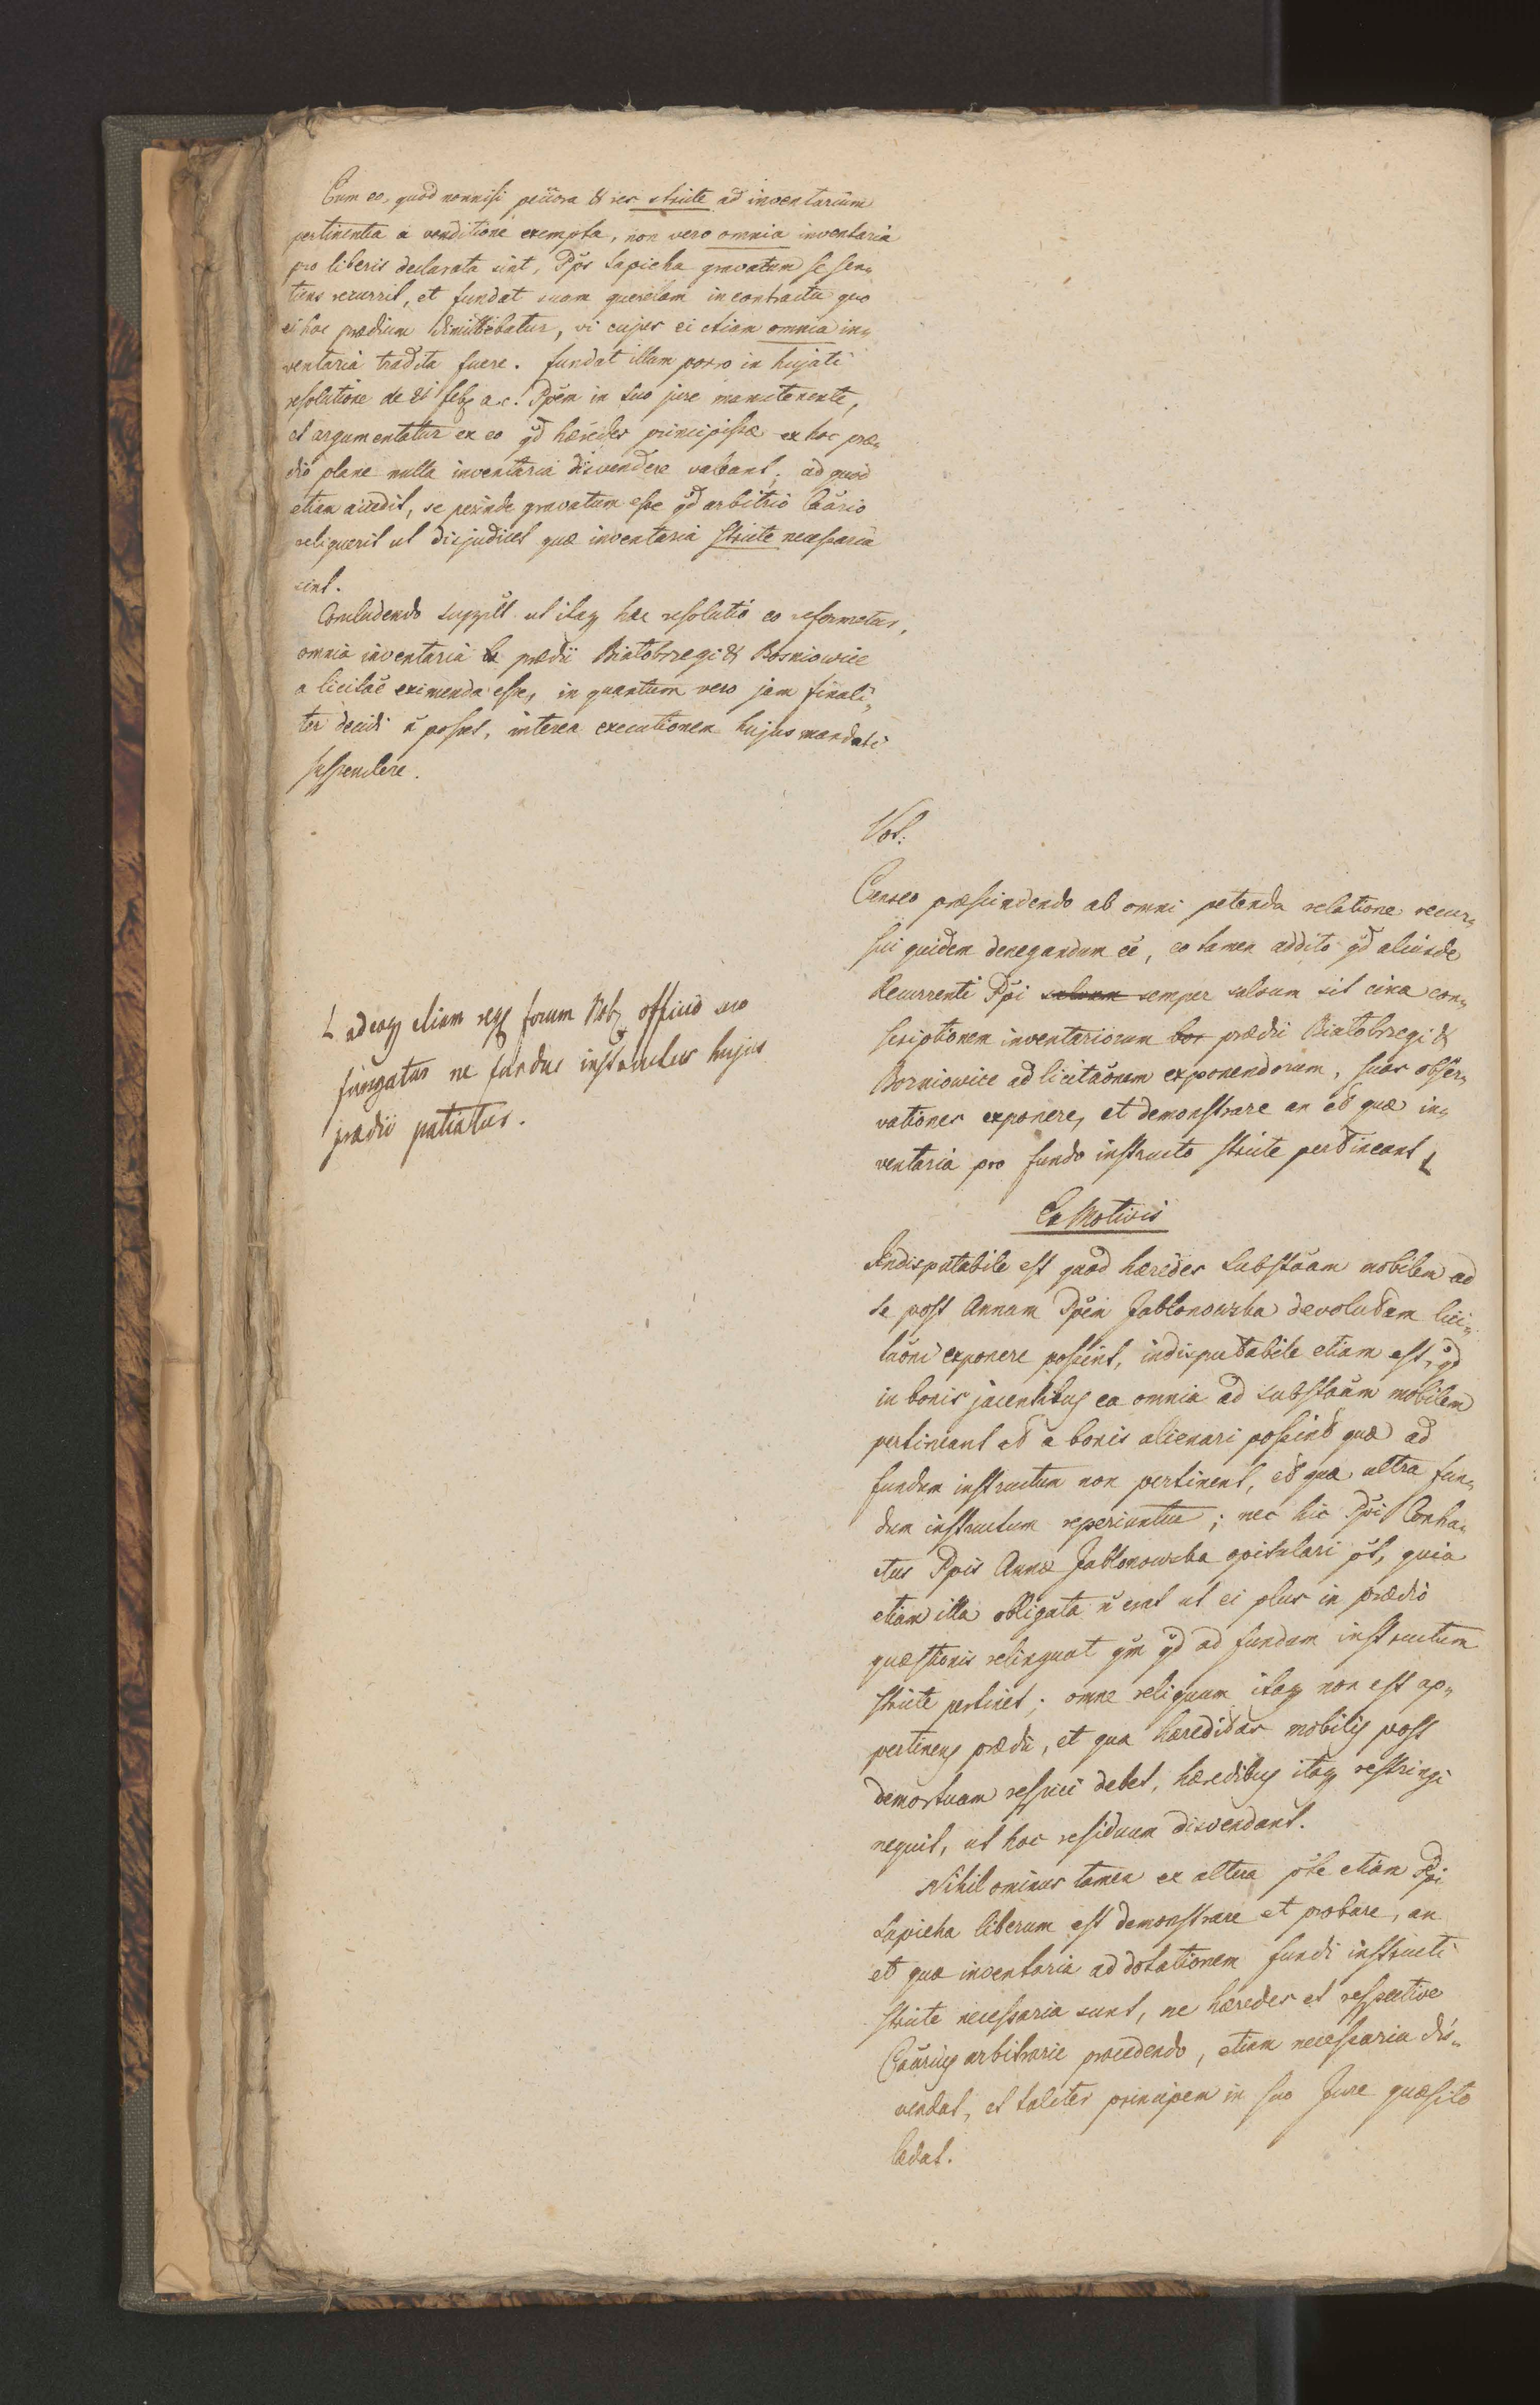 Cum eo, quod nonnisi pecora & res stricte ad inventarium
pertinentia a venditione exempta, non vero omnia inventaria
pro liberis declarata sint, Pps Sapieha gravatum se sen„
tiens recurrit, et fundat suam querelam in contractu quo
ei hoc prædium dimittebatur, vi cujus ei etiam omnia in„
ventaria tradita fuere. fundat illam porro in hujati
resolutione de 21 feb a. c. Ppem in suo jure manutenente,
et argumentatur ex eo qd hæredes principissæ ex hoc præ„
dio plane nulla inventaria divendere valeant; ad quod
etiam accedit, se perinde gravatum esse qd arbitrio Caario
reliquerit ut dijudicet quæ inventaria stricte necessaria
sint.
Concludendo supplt ut itaq hæc resolutio eo reformetur,
omnia inventaria prædii Białobrzegi & Bosniowice
a licitae eximenda esse, in quantum vero jam finali„
ter decidi n posset, interea executionem hujus mandati
suspendere.
Vot:
Censeo præscindendo ab omni petenda relatione recur„
sui quidem denegandum ee, eo tamen addito qd aliunde
Recurrenti Ppi salvum semper salvum sit circa con„
scriptionem inventariorum hor prædii Białobrzegi &
Borniowice ad licitaonem exponendorum, suas obser„
vationes exponere, et demonstrare an et quæ in„
ventaria pro fundo instructo stricte pertineant L
L adeoq etiam forum Nob officio suo
fungatur ne fundus instructus hujus
prædii patiatur.
Ex Motivis
Indisputabile est quod hæredes substaam mobilem ad
se post Annam Ppem Jabłonowska devolutam lici„
taoni exponere possint, indisputabile etiam est, qd
in bonis jacentibus ea omnia ad substaam mobilem
pertineant et a bonis alienari possint quæ ad
fundum instructum non pertinent, et quæ ultra fun„
dum instructum reperiuntur; nec hic Ppi Contra„
ctus Ppis Annæ Jabłonowska opitulari pt, quia
etiam illa obligata n erat ut ei plus in prædio
quæstionis relinquat qm qd ad fundum instructum
stricte pertinet; omne reliquum itaq non est ap„
pertinens prædii, et qua hæreditas mobilis post
demortuam respici debet, hæredibus itaq restringi
nequit, ut hoc residuum divendant.
Nihilominus tamen ex altera pte etiam Ppi
Sapieha liberum est demonstrare et probare, an
et quæ inventaria ad dotationem fundi instructi
stricte necessaria sunt, ne hæredes et respective
Caarius arbitrarie procedendo, etiam necessaria di„
vendat, et taliter principem in suo Jure quæsito
lædat.